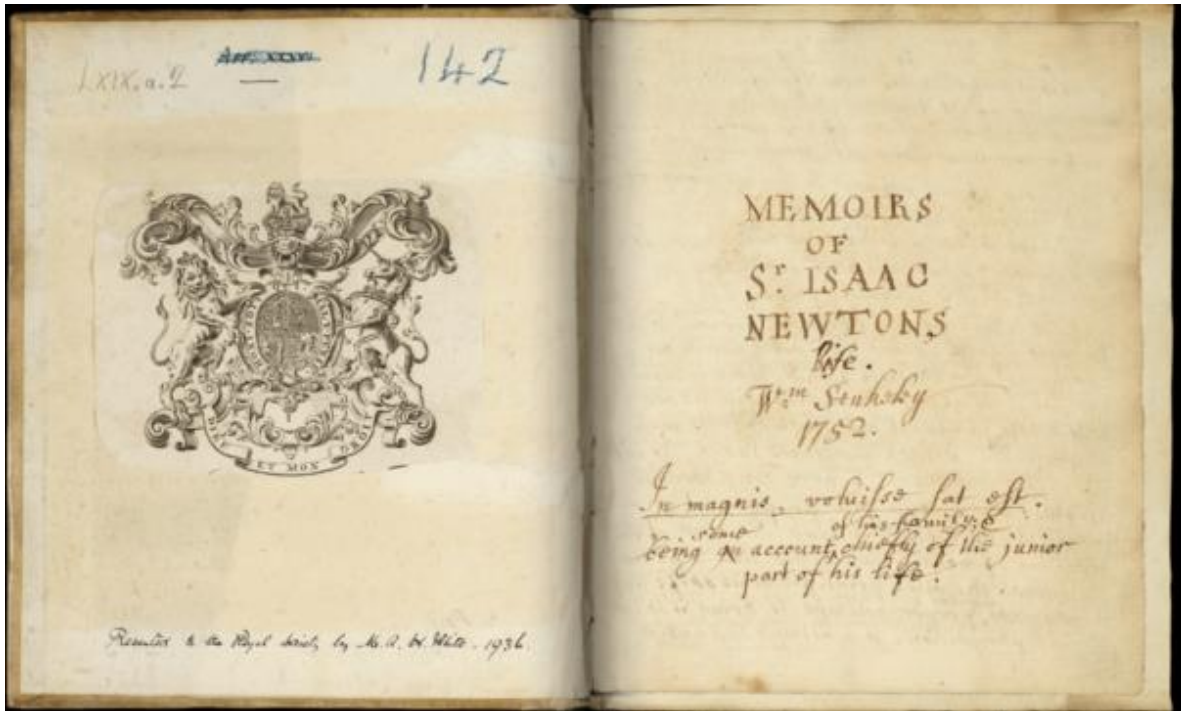 LXIX.a.2
142
DIEU ET MON DROIT
Presented to the Royal Society by Mr. A. H. White. 1936.
MEMOIRS
OF
Sr. ISAAC
NEWTONS
life.
Wm Stukeley
1752.
In magnis, voluisse sat est.
some of his family; &
being an account, chiefly of the junior
part of his life.